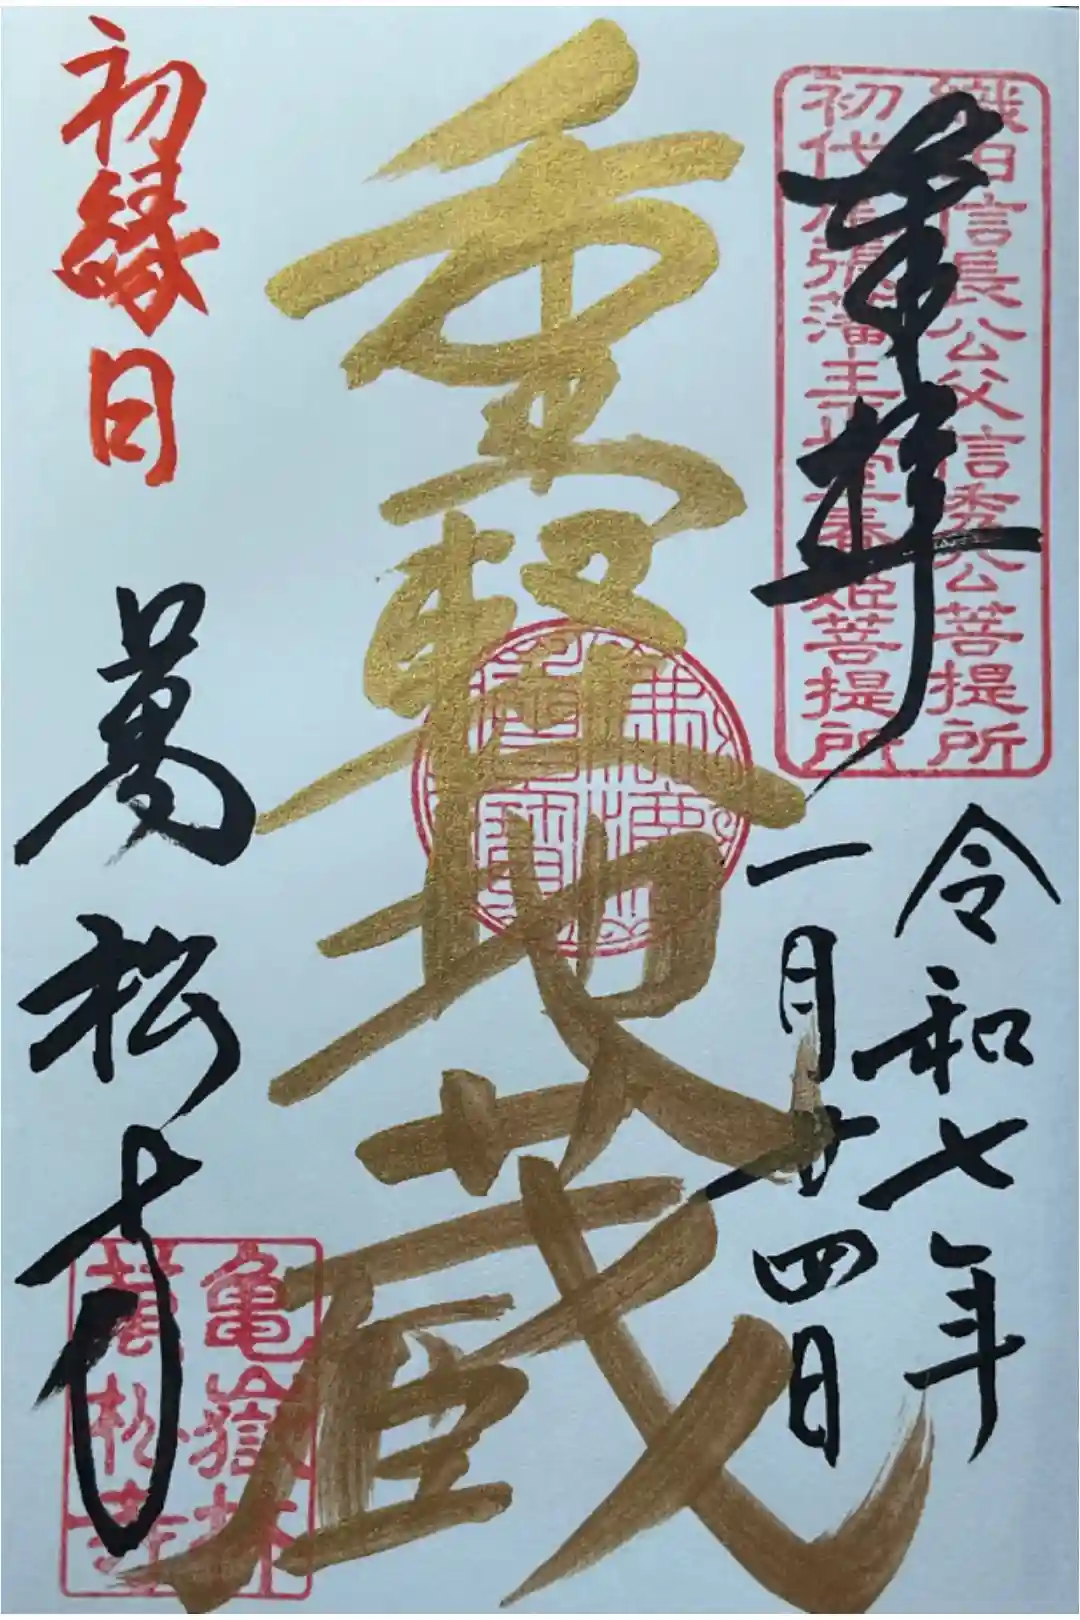 奉拝
織田信長公父信秀公菩提所
初代尾張藩主正室春姫菩提所
令和七年
一月廿四日
重軽地蔵
初縁日
萬松寺
亀嶽林
萬松寺